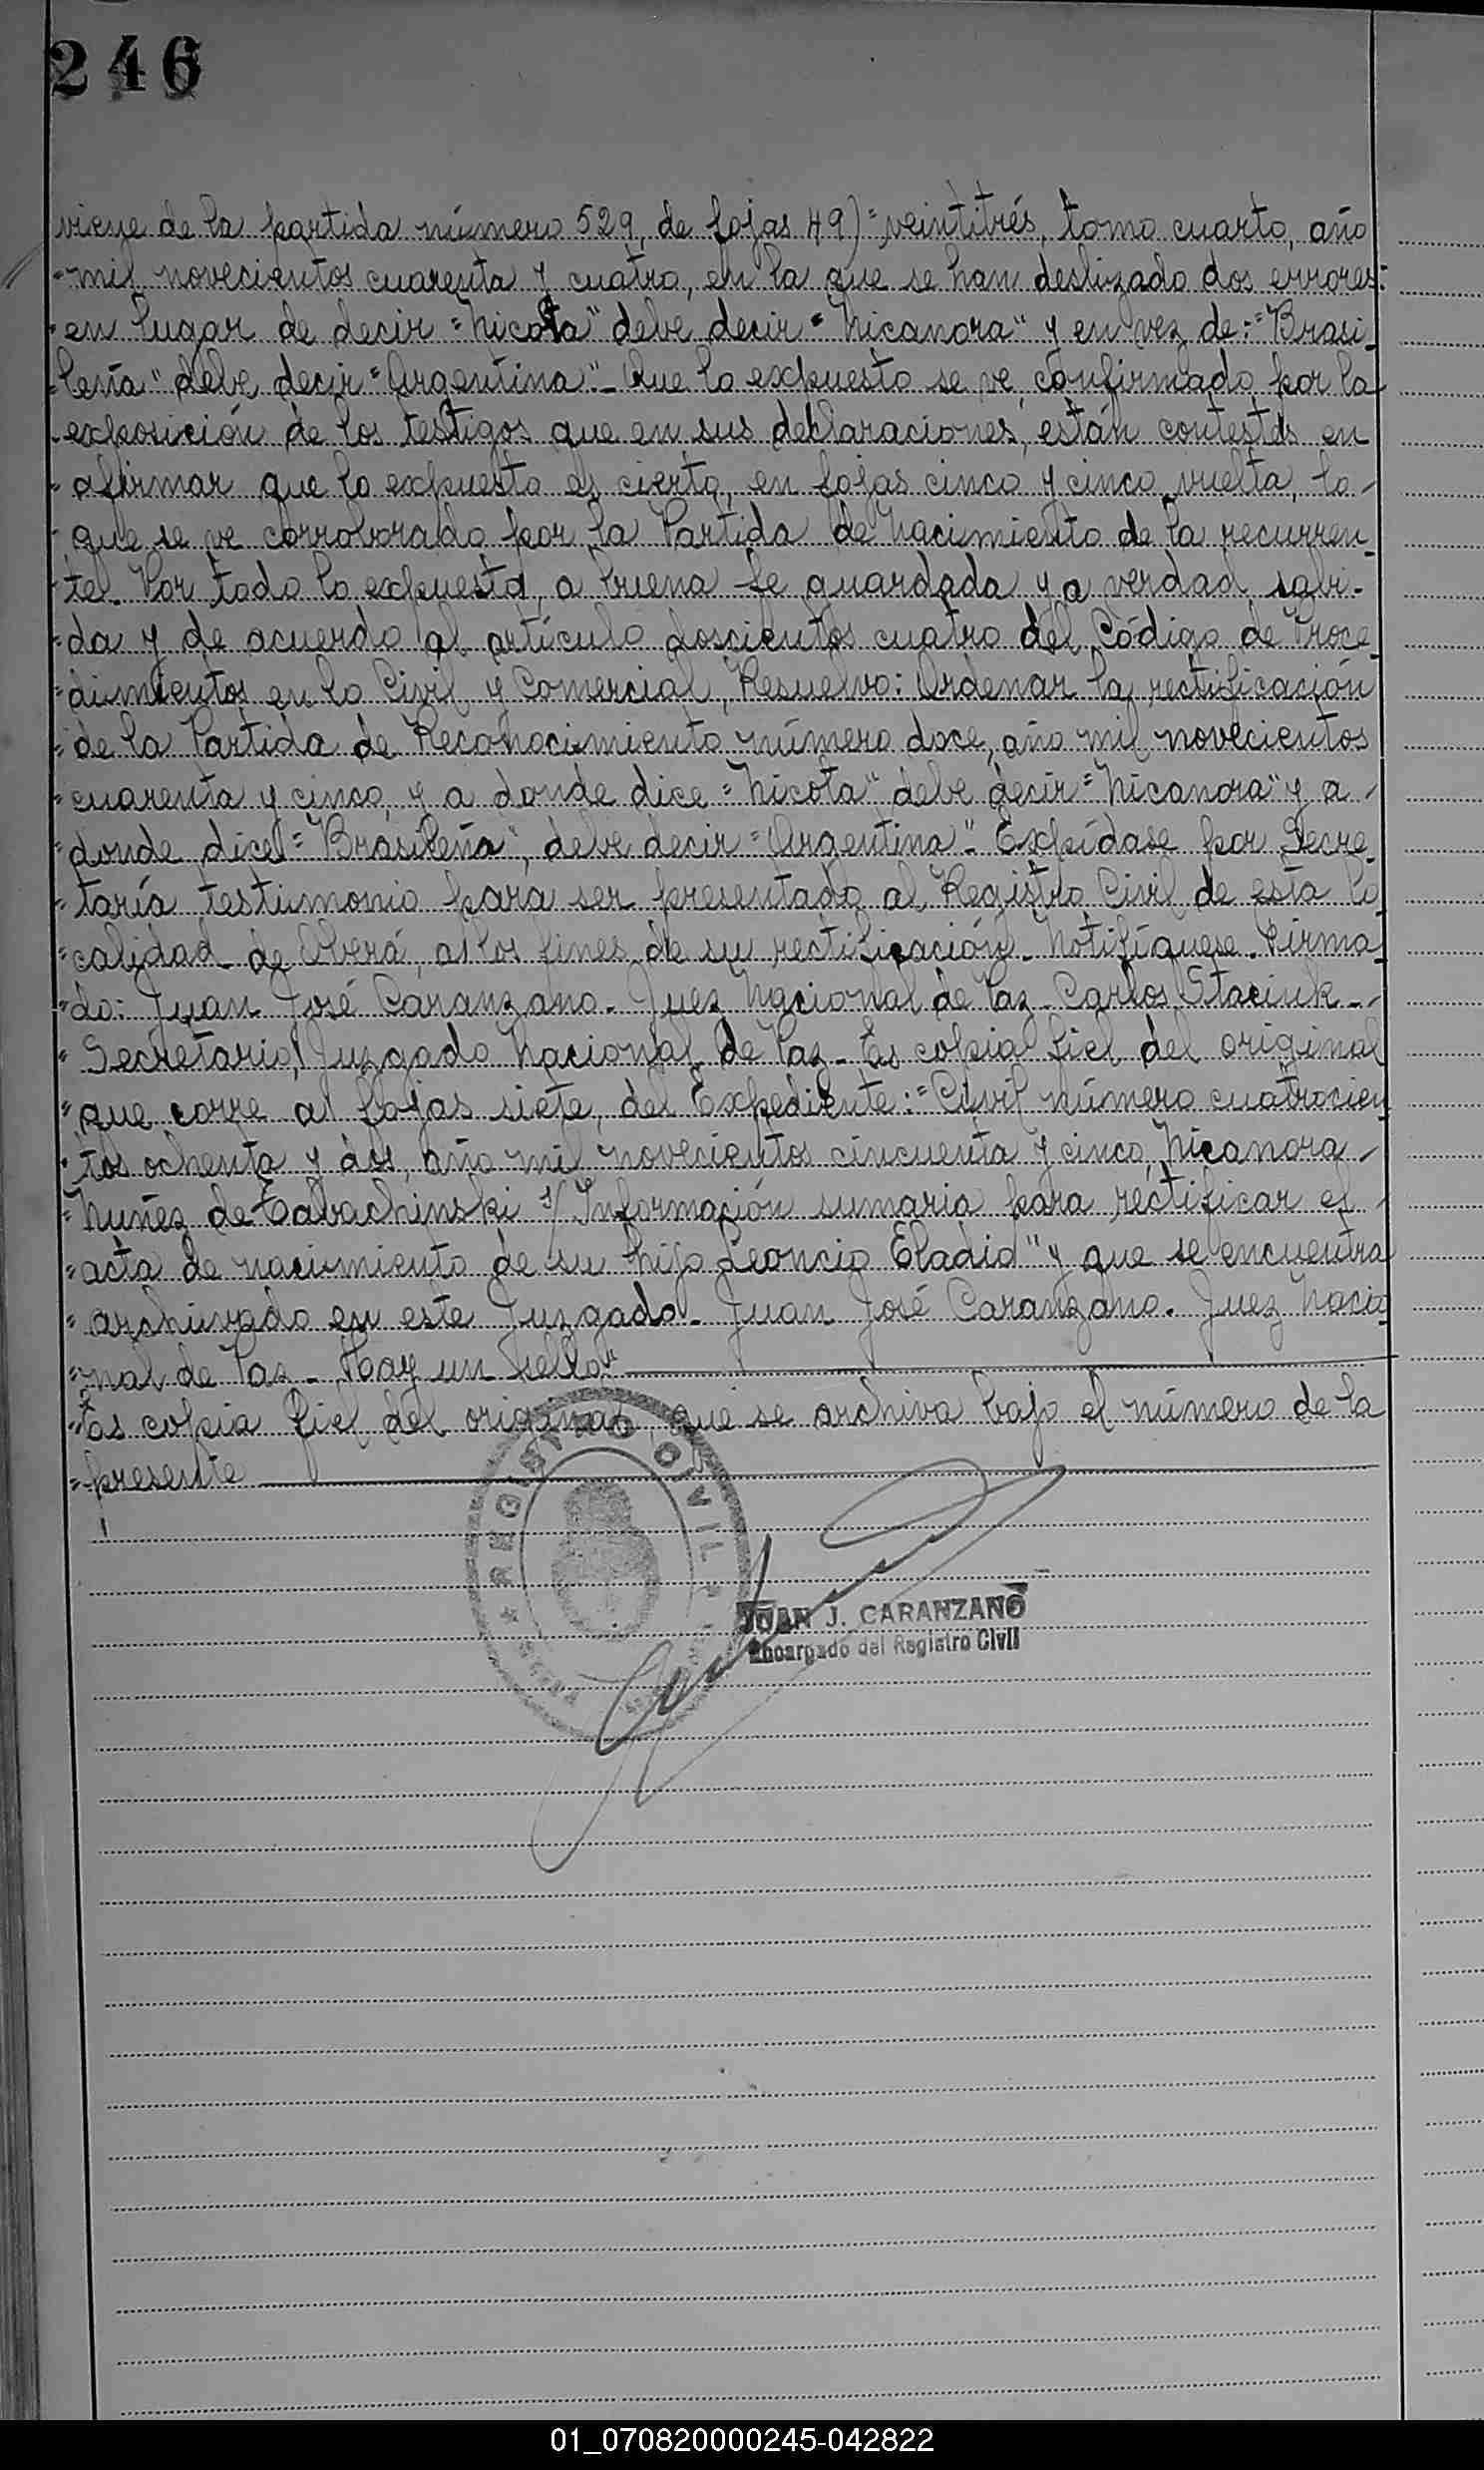 246
viene de la partida número 529, de fojas 49)="veintitrés, tomo cuarto, año
"mil novecientos cuarenta y cuatro, en la que se han deslizado dos errores:
"en lugar de decir="Nicota" debe decir="Nicanora" y en vez de:="Brasi-
"leña" debe decir="Argentina".- Que lo expuesto se ve confirmado por la
"exposición de los testigos que en sus declaraciones, están contestes en
"afirmar que lo expuesto es cierto, en fojas cinco y cinco vuelta, lo-
"que se ve corroborado por la Partida de Nacimiento de la recurren-
"te. Por todo lo expuesto, a buena fe guardada y a verdad sabi-
"da y de acuerdo al artículo doscientos cuatro del Código de Proce-
"dimientos en lo Civil y Comercial, Resuelvo: Ordenar la rectificación
"de la Partida de Reconocimiento número doce, año mil novecientos
"cuarenta y cinco, y a donde dice="Nicota" debe decir="Nicanora" y a-
"donde dice="Brasileña", debe decir="Argentina".- Expídase por Secre-
"taría testimonio para ser presentado al Registro Civil de esta lo-
"calidad de Oberá, a los fines de su rectificación.- Notifíquese. Firma-
"do: Juan José Caranzano.- Juez Nacional de Paz.- Carlos Staciuk.-
"Secretario, Juzgado Nacional de Paz.- Es copia fiel del original
"que corre a fojas siete, del Expediente:="Civil número cuatrocien-
"tos ochenta y dos, año mil novecientos cincuenta y cinco, Nicanora-
"Nuñez de Tabachinski s/ Información sumaria para rectificar el-
"acta de nacimiento de su hijo Leoncio Eladio" y que se encuentra
"archivado en este Juzgado.- Juan José Caranzano. Juez Nacio-
"nal de Paz.- Hay un sello"
"Es copia fiel del original, que se archiva bajo el número de la
"presente
REGISTRO CIVIL
JUAN J. CARANZANO
Encargado del Registro Civil
01_070820000245-042822